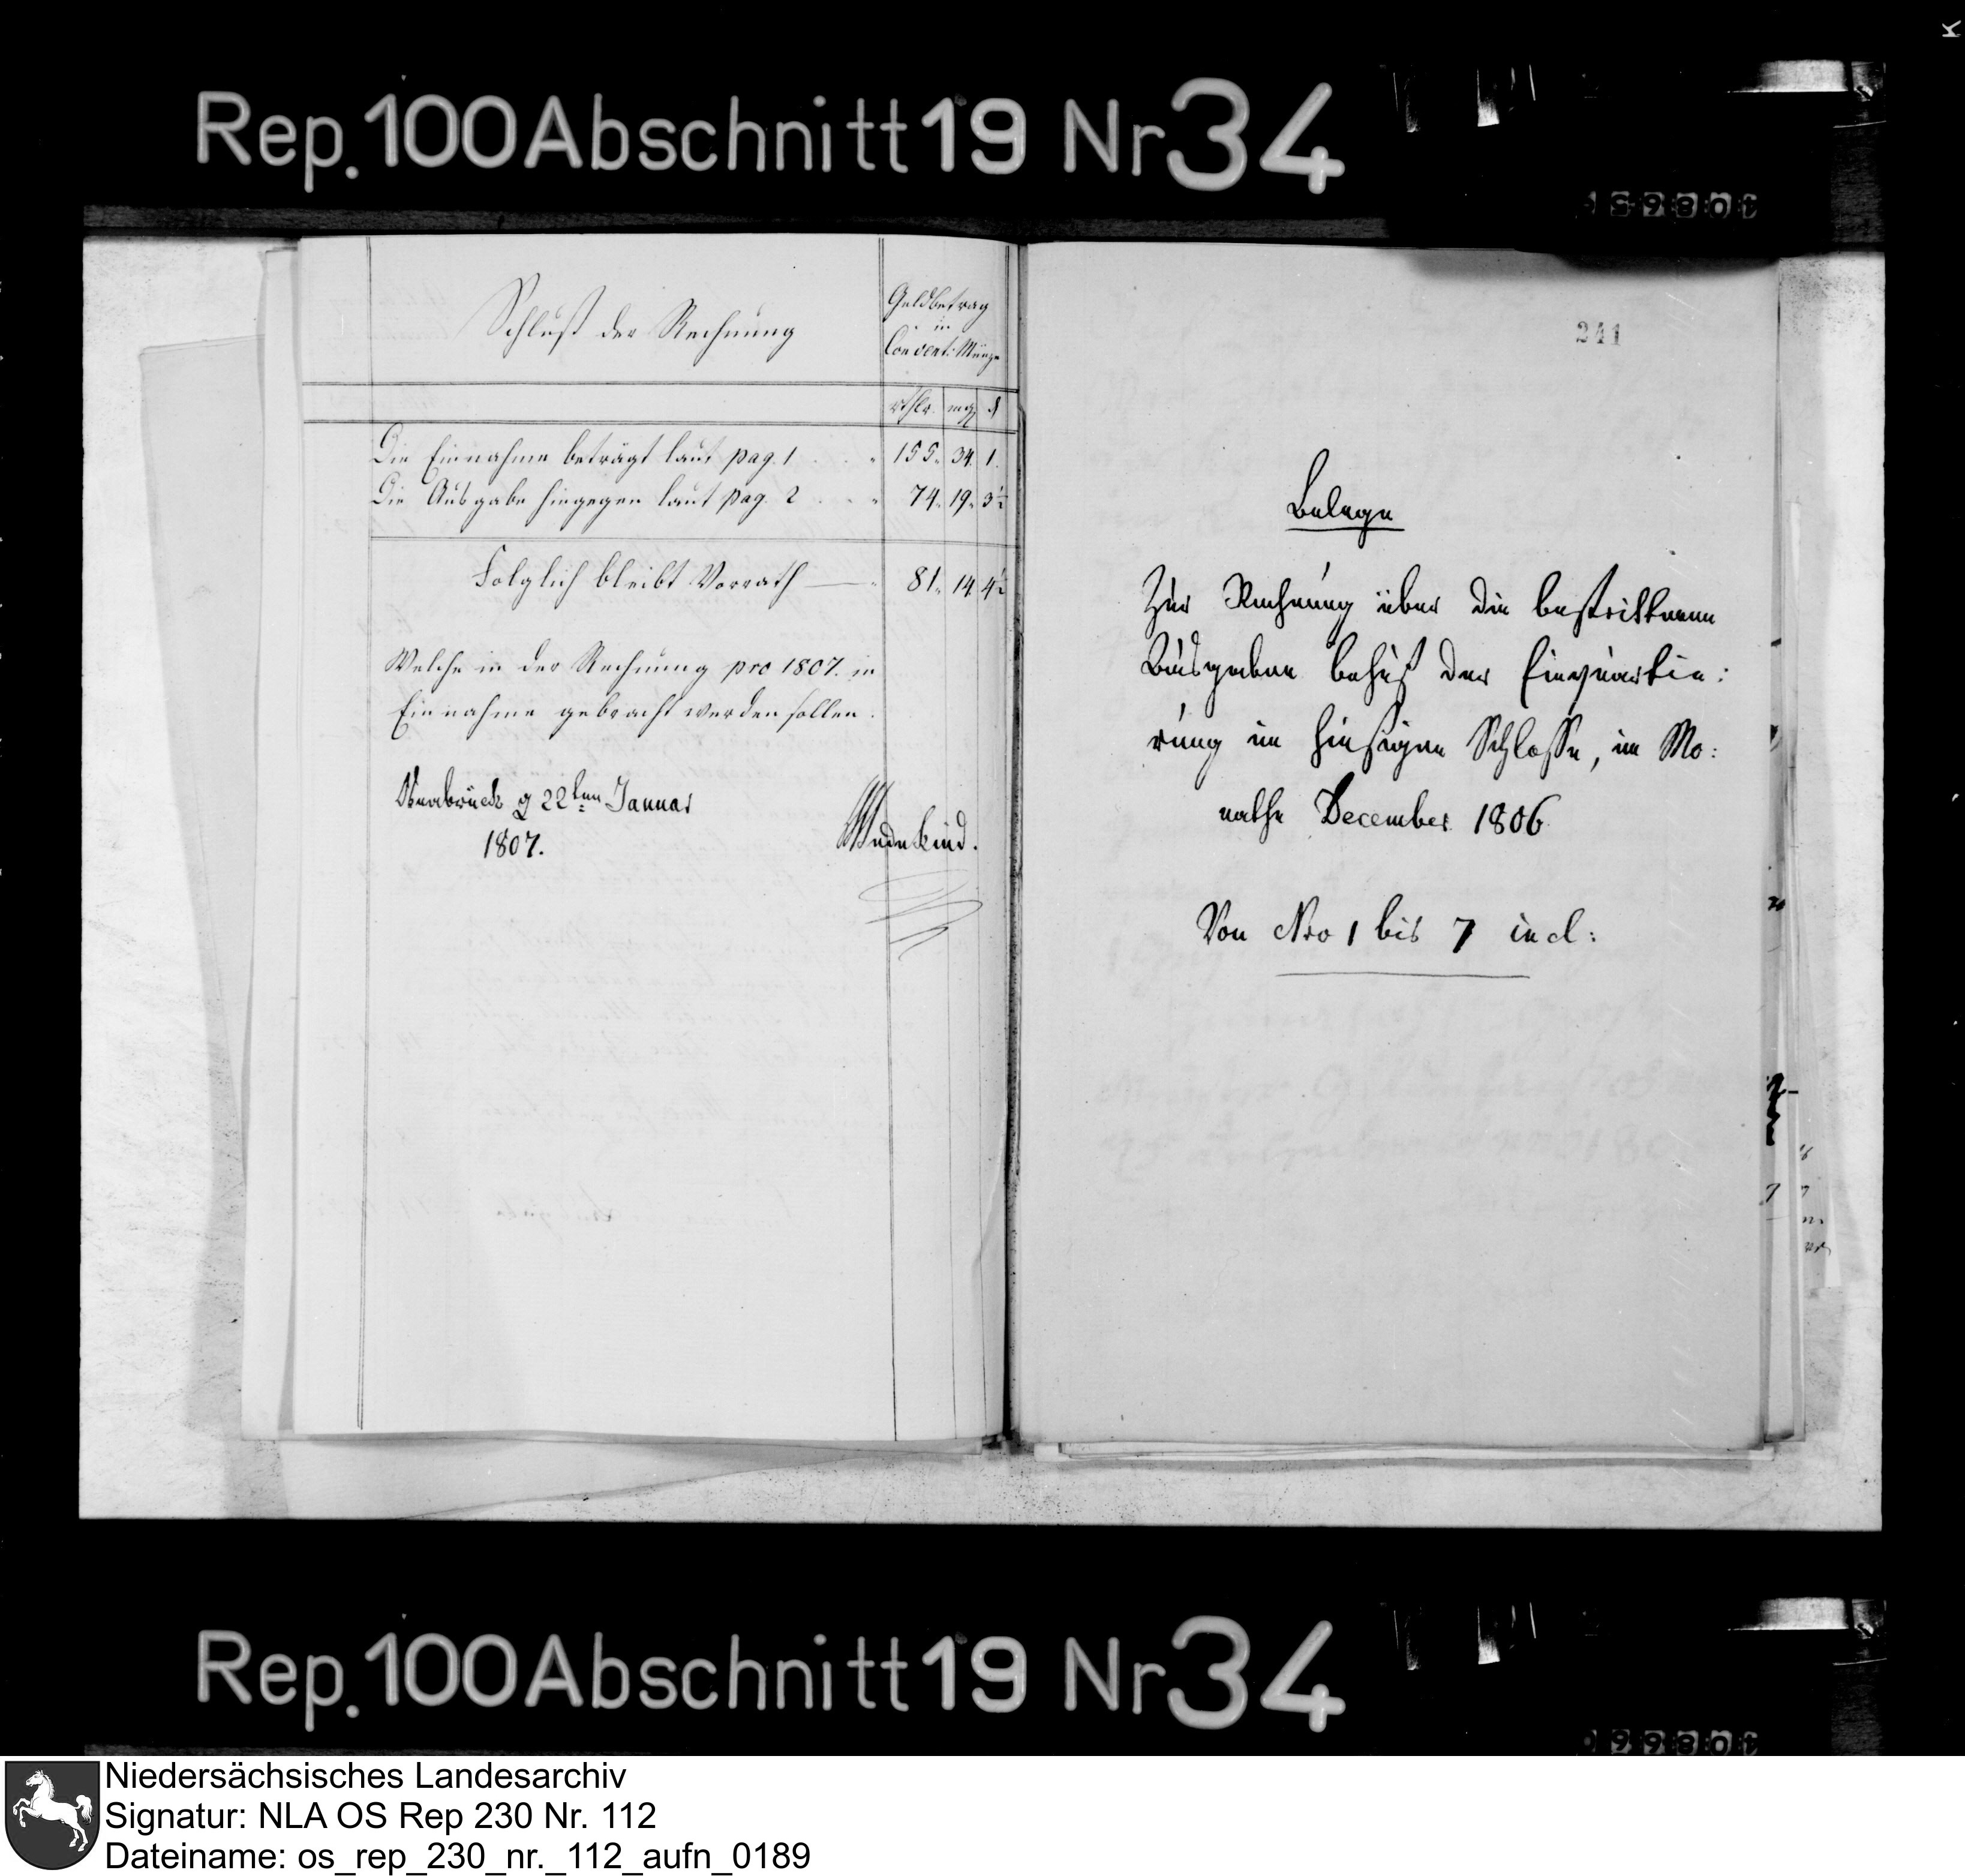 Rep. 100 Abschnitt 19 Nr 34
Schluß der Rechnung
Geldbetrag
in
Convent: Münze
rthlr. mg. d
Die Einnahme beträgt laut pag. 1 155. 34. 1.
Die Ausgabe hingegen laut pag. 2 74. 19. 3½
Folglich bleibt Vorrath — 81. 14. 4½
Welche in der Rechnung pro 1807. in
Einnahme gebracht werden sollen.
Osnabrück d 22ten Januar
1807.
Wedekind.
241
Belege
Zur Rechnung über die bestrittenen
Ausgaben behuf der Einquartie:
rung im hiesigen Schlosse, im Mo:
nathe December 1806
Von Nro 1 bis 7 incl:
Rep. 100 Abschnitt 19 Nr 34
Niedersächsisches Landesarchiv
Signatur: NLA OS Rep 230 Nr. 112
Dateiname: os_rep_230_nr._112_aufn_0189